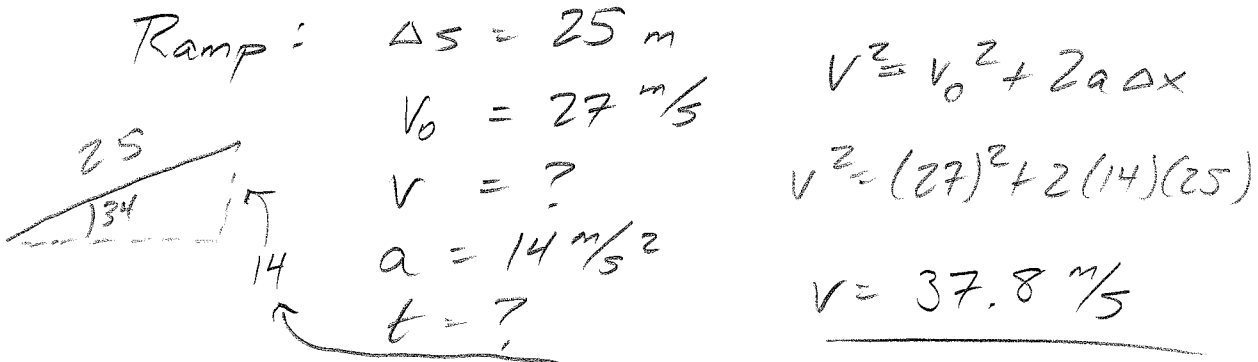 Ramp: Δs = 25 m
v₀ = 27 m/s
v = ?
a = 14 m/s²
t = ?
25
34
14
v² = v₀² + 2a Δx
v² = (27)² + 2(14)(25)
v = 37.8 m/s